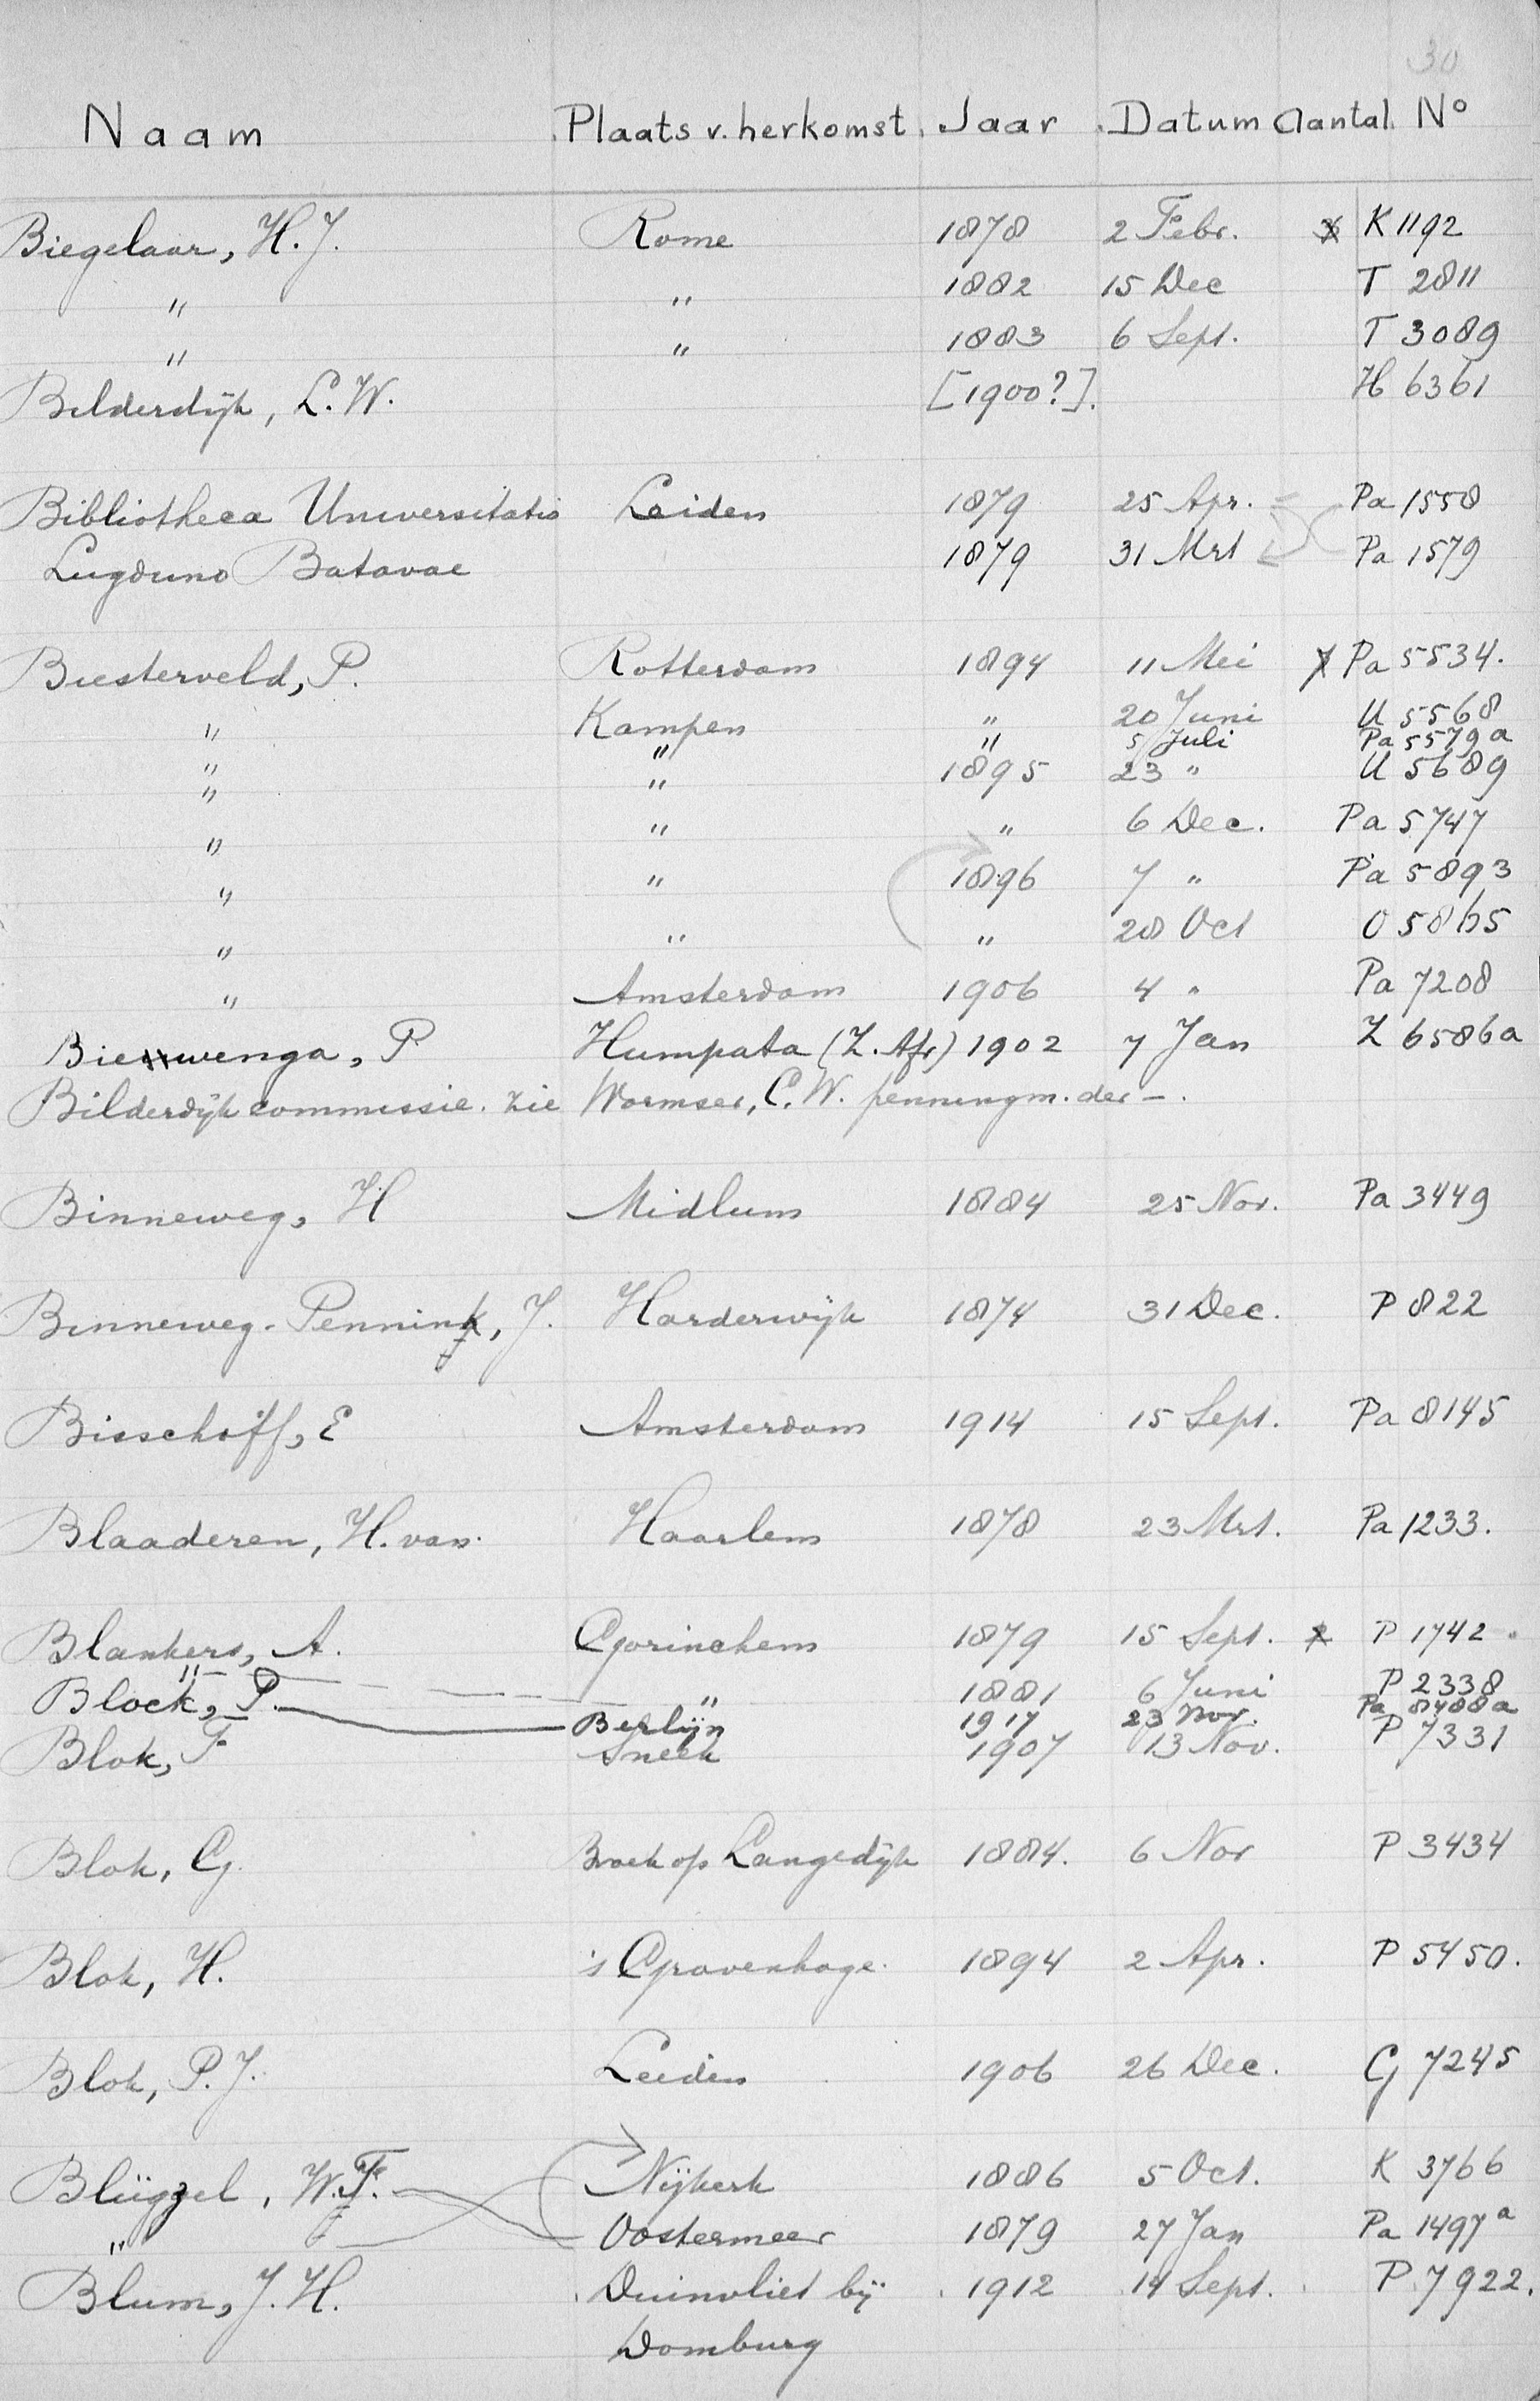 30
Naam Plaats v. herkomst. Jaar Datum Aantal No
Biegelaar, H. J. Rome 1878 2 Febr. K 1192
" " 1882 15 Dec T 2811
" " 1883 6 Sept. T 3089
Bilderdijk, L. W. [1900?]. H 6361
Bibliotheca Universitatis Leiden 1879 25 Apr. Pa 1558
Lugduno Batavae 1879 31 Mrt Pa 1579
Biesterveld, P. Rotterdam 1894 11 Mei Pa 5534.
" Kampen " 20 Juni U 5568
" " " 5 Juli Pa 5579a
" " 1895 23 " U 5689
" " " 6 Dec. Pa 5747
" " 1896 7 " Pa 5893
" " " 28 Oct O 5865
" Amsterdam 1906 4 " Pa 7208
Biewenga, P Humpata (Z. Afr) 1902 7 Jan Z 6586a
Bilderdijk commissie. zie Wormser, C. W. penningm. der -.
Binneweg, H Midlum 1884 25 Nov. Pa 3449
Binneweg-Pennink, J. Harderwijk 1874 31 Dec. P 822
Bisschoff, E Amsterdam 1914 15 Sept. Pa 8145
Blaaderen, H. van Haarlem 1878 23 Mrt. Pa 1233.
Blankers, A. Gorinchem 1879 15 Sept. P 1742
" " 1881 6 Juni P 2338
Block, P. Berlijn 1917 23 Nov. Pa 8488a
Blok, F Sneek 1907 13 Nov. P 7331
Blok, G. Broek op Langedijk 1884. 6 Nov P 3434
Blok, H. 's Gravenhage. 1894 2 Apr. P 5450.
Blok, P. J. Leiden 1906 26 Dec. G 7245
Blügzel, W. F. Nijkerk 1886 5 Oct. K 3766
" Oostermeer 1879 27 Jan Pa 1497a
Blum, J. H. Duinvliet bij 1912 14 Sept. P 7922.
Domburg